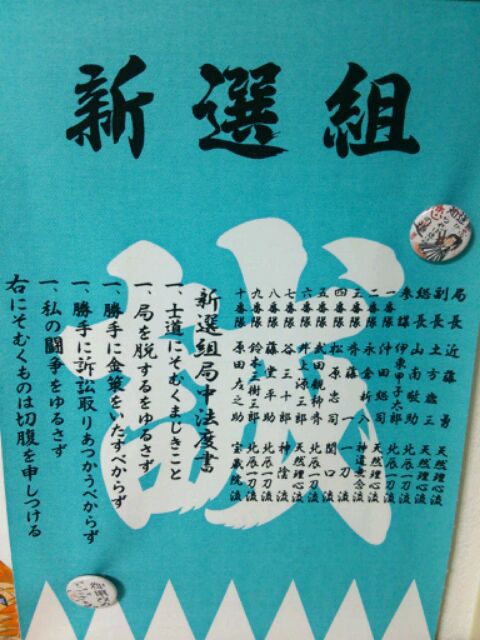 新選組
誠
局長 近藤勇 天然理心流
副長 土方歳三 天然理心流
総長 山南敬助 北辰一刀流
参謀 伊東甲子太郎 北辰一刀流
一番隊 沖田総司 天然理心流
二番隊 永倉新八 神道無念流
三番隊 斉藤一 一刀流
四番隊 松原忠司 関口流
五番隊 武田観柳斉
六番隊 井上源三郎 天然理心流
七番隊 谷三十郎 神陰流
八番隊 藤堂平助 北辰一刀流
九番隊 鈴木三樹三郎 北辰一刀流
十番隊 原田左之助 宝蔵院流
新選組局中法度書
一、士道にそむくまじきこと
一、局を脱するをゆるさず
一、勝手に金策をいたすべからず
一、勝手に訴訟取りあつかうべからず
一、私の闘争をゆるさず
右にそむくものは切腹を申しつける